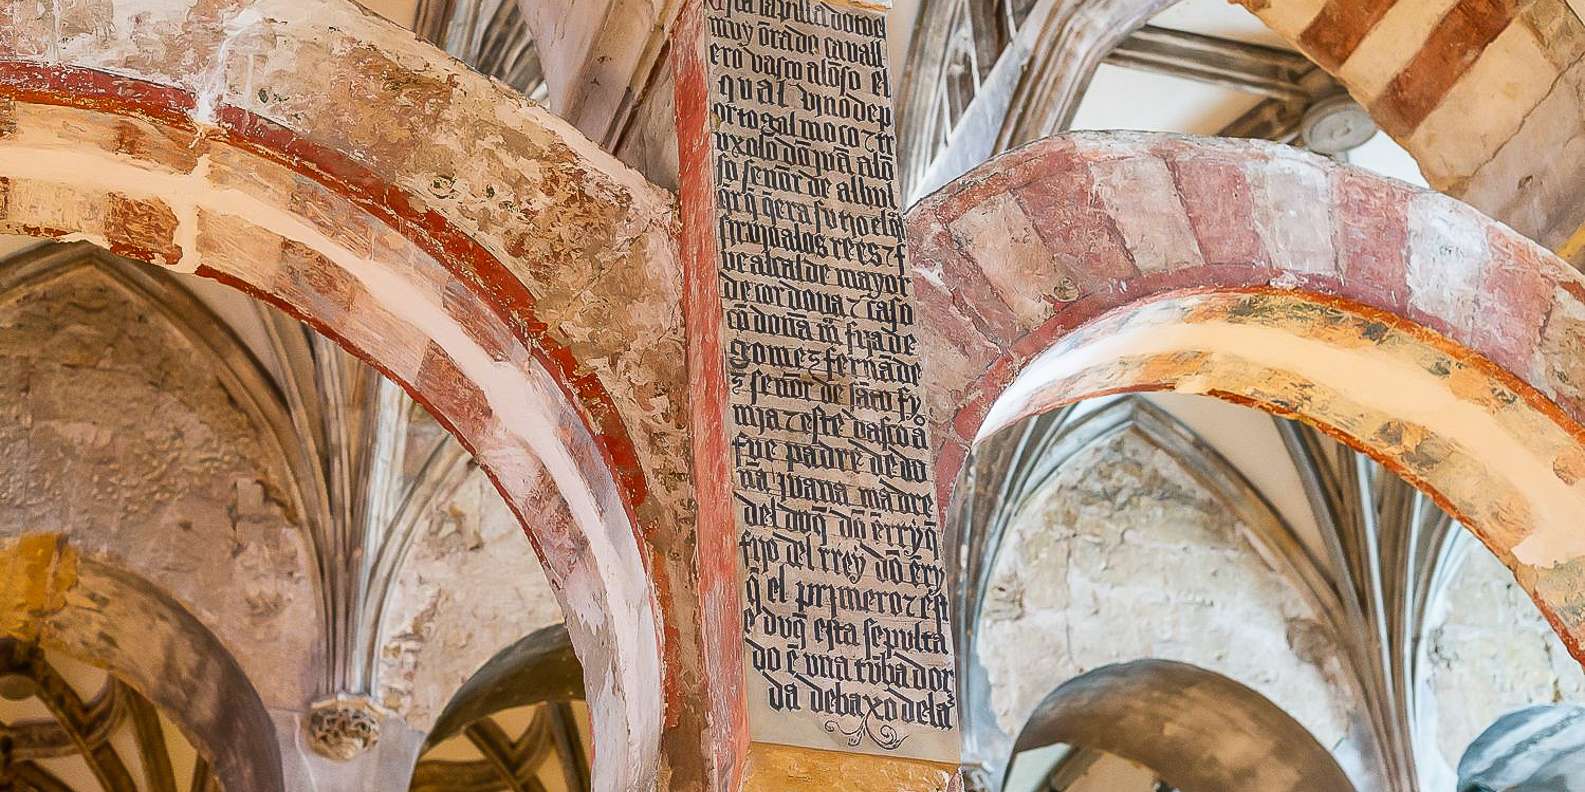 esta capilla doto el
muy õrado cavall
ero vasco alõso el
qual vino de p
ortogal moço ⁊ tr
uxolo dõ jvã alõ
so señor de albu
qrq̃
fijo
a los reyes ⁊ f
ue alcalde mayor
de cordova ⁊ caso
cõ doña
gomez fernãde
z señor de sãta
mja ⁊ este vasco aº
fue padre de do
ña juana madre
del duq̃ dõ ẽrryq̃
fijo del rrey dõ ẽrry
q̃ el primero ⁊ est
e duq̃ esta sepulta
do ẽ una tũba dor
da debaxo dela